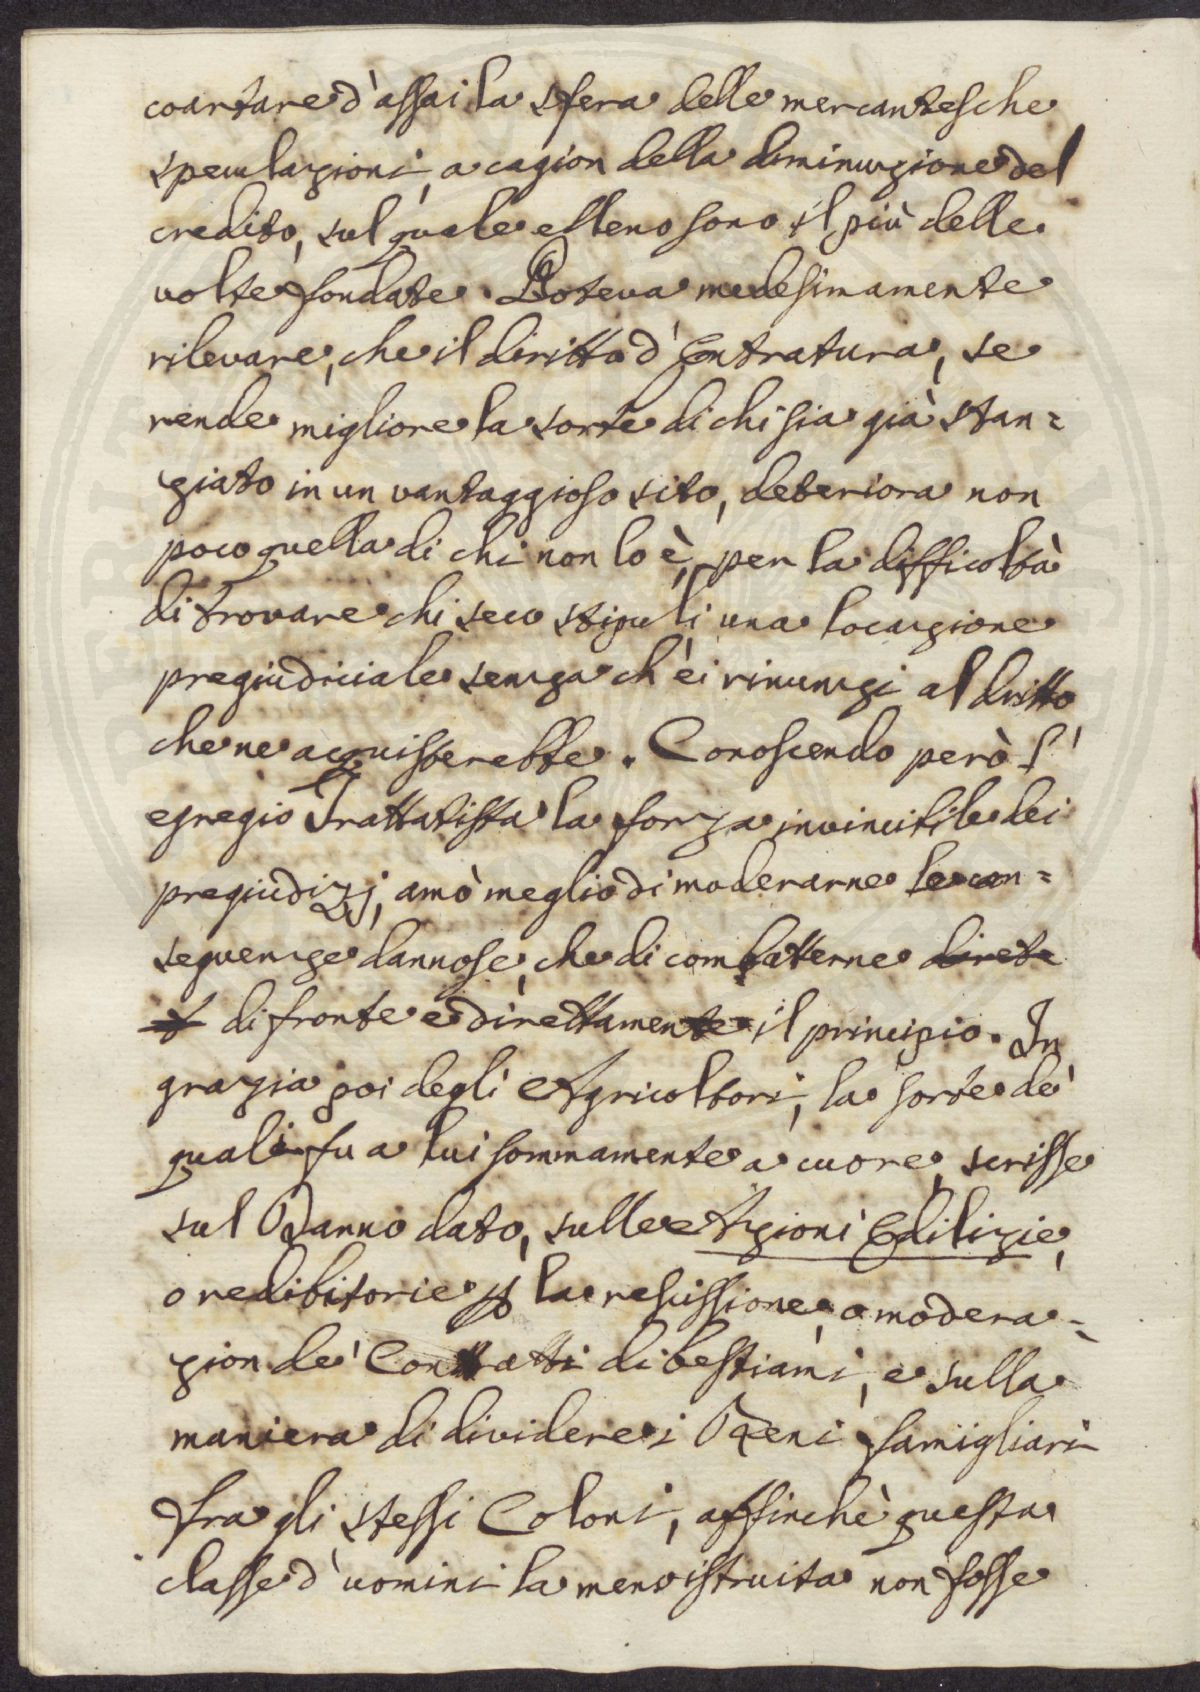 coartare d'assai la sfera delle mercantesche
speculazioni, a cagion della diminuzione del
credito, sul quale elleno sono il più delle
volte fondate. Poteva medesimamente
rilevare, che il diritto d'Entratura, se
rende migliore la sorte di chi sia già stan=
ziato in un vantaggioso sito, deteriora non
poco quella di chi non lo è, per la difficoltà
di trovare chi seco stipuli una locazione
pregiudiciale senza ch'ei rinunzi al dritto
che ne acquisterebbe. Conoscendo però l'
egregio Trattatista la forza invincibile dei
pregiudizj, amò meglio di moderarne le con=
seguenze dannose, che di combatterne dirett
di fronte e direttamente il principio. In
grazia poi degli Agricoltori, la sorte de'
quali fu a lui sommamente a cuore, scrisse
sul Danno dato, sulle Azioni Edilizie,
o redibitorie p la rescissione, o modera=
zion de' Contratti di bestiami, e sulla
maniera di dividere i Beni famigliari
fra gli stessi Coloni, affinchè questa
classe d'uomini la meno istruita non fosse